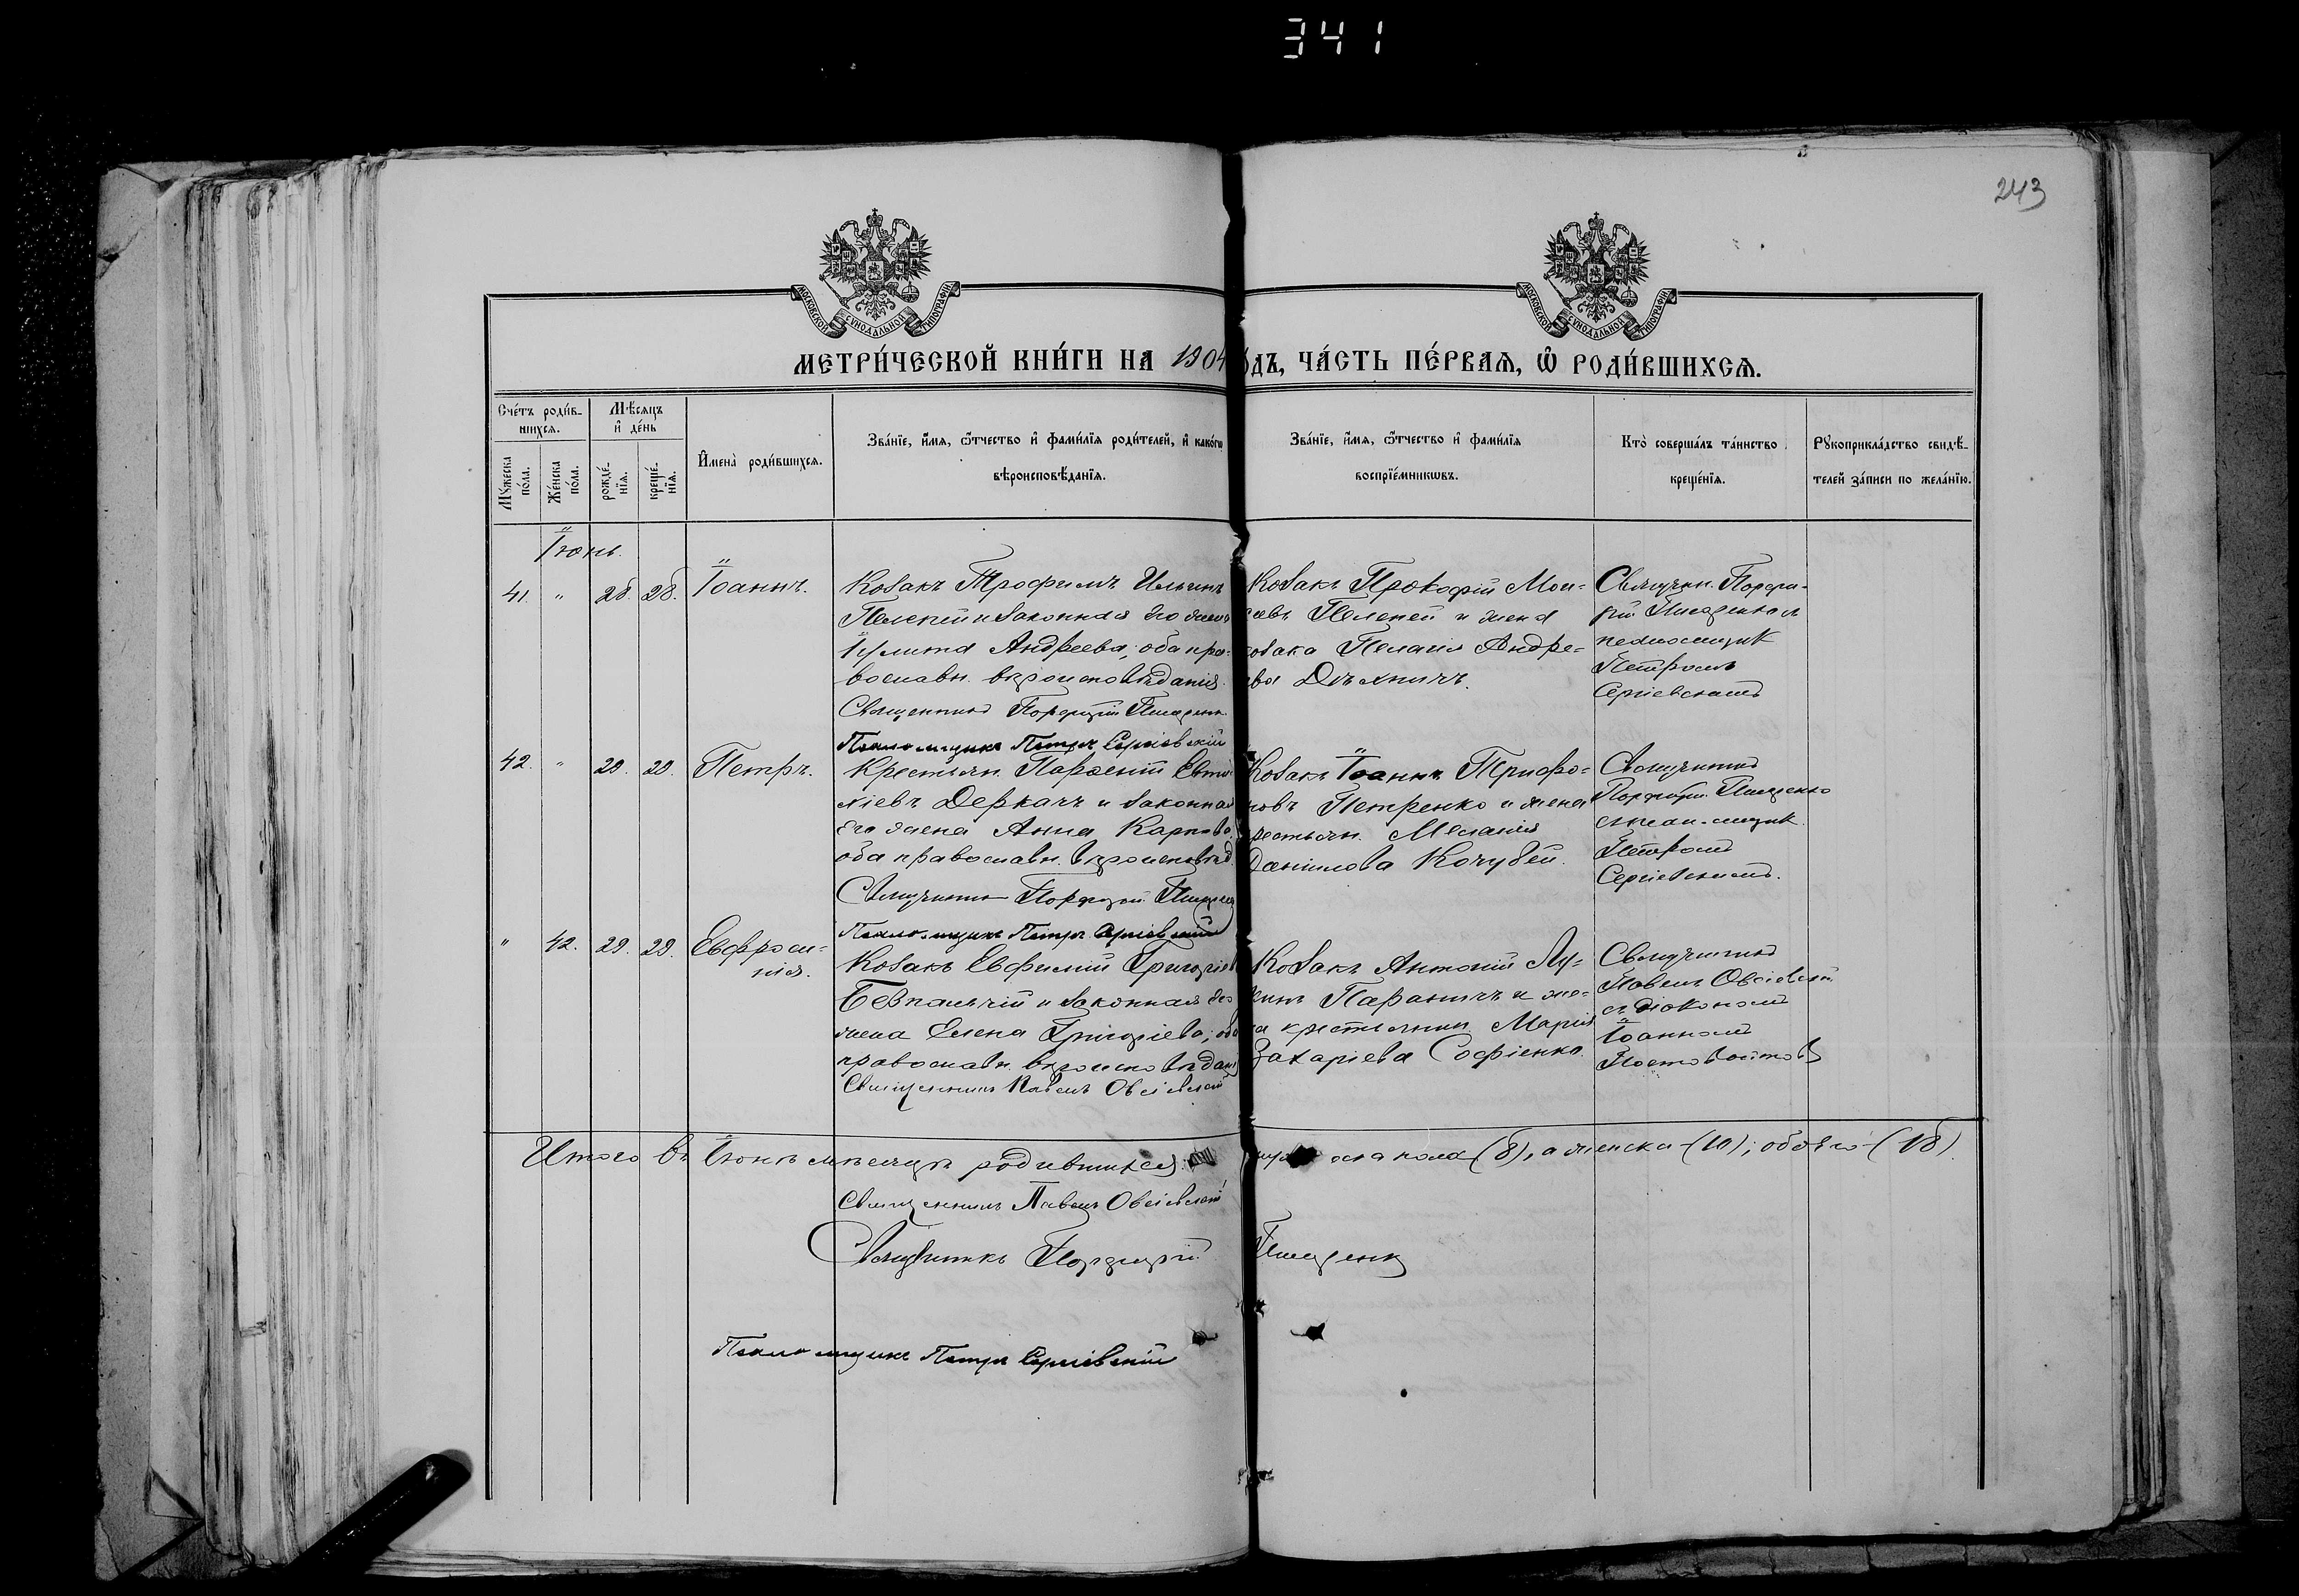 341
243
МОСКОВСКОЙ СѴНОДАЛЬНОЙ ТИПОГРАФІИ
МОСКОВСКОЙ СѴНОДАЛЬНОЙ ТИПОГРАФІИ
МЕТРИ́ЧЕСКОЙ КНИ́ГИ НА 1904 ОДЪ, ЧА́СТЬ ПЕ́РВАѦ, Ѽ РОДИ́ВШИХСѦ.
Сче́тъ роди́в-
шихсѧ.
Мꙋ́жеска по́ла.
Же́нска по́ла.
Мѣ́сѧцъ и҆ де́нь
рожде́-нїѧ.
креще́-нїѧ.
И҆мена̀ роди́вшихсѧ.
Зва́нїе, и҆́мѧ, ѻ҆́тчество и҆ фами́лїѧ роди́телей, и҆ како́гѡ
вѣроисповѣ́данїѧ.
Зва́нїе, и҆́мѧ, ѻ҆́тчество и҆ фами́лїѧ
воспрїе́мникѡвъ.
Кто̀ соверша́лъ та́инство
креще́нїѧ.
Рꙋкоприкла́дство свидѣ́-
телей за́писи по жела́нїю.
Іюнь.
41. " 28. 28. Іоаннъ.
Козакъ Трофимъ Ильинъ
Пелепей и законная его жена
Іулита Андреева; оба пра-
вославн. вѣроисповѣданія.
Священникъ Порфирій
Псаломщикъ Петръ Сергіевскій
Козакъ Прокофій Мои-
сеевъ Пелепей и жена
козака Пелагія Андре-
ева
Священ. Порфи-
рій
псаломщик
Петромъ
Сергіевскимъ
42. " 29. 29. Петръ.
Крестьян. Парѳеній Евти-
хіевъ Деркачъ и законная
его жена Анна Карпова,
оба православн. вѣроисповѣд.
Священникъ Порфирій
Псаломщикъ Петръ Сергіевскій
Козакъ Іоаннъ Трифо-
новъ Петренко и жена
крестьян. Меланія
Данилова Кочубей.
Священникъ
Порфирій
съ псаломщик.
Петромъ
Сергіевскимъ.
" 42. 29. 29. Евфроси-
нія.
Козакъ Евфимій Григоріев
Безпалчій и законная его
жена Елена Григоріева; оба
православн. вѣроисповѣдан
Священникъ Павелъ Овсіевскій
Козакъ Антоній Лу-
кинъ Параничъ и же-
на крестьянин. Марія
Захаріева Софіенко.
Священникъ
Павелъ Овсіевскій
съ діакономъ
Іоанномъ
Итого въ Іюнѣ мѣсяцѣ родившихся муж еска пола (8), а женска (10); обоего (18).
Священникъ Павелъ Овсіевскій
Священникъ Порфирій
Псаломщикъ Петръ Сергіевскій